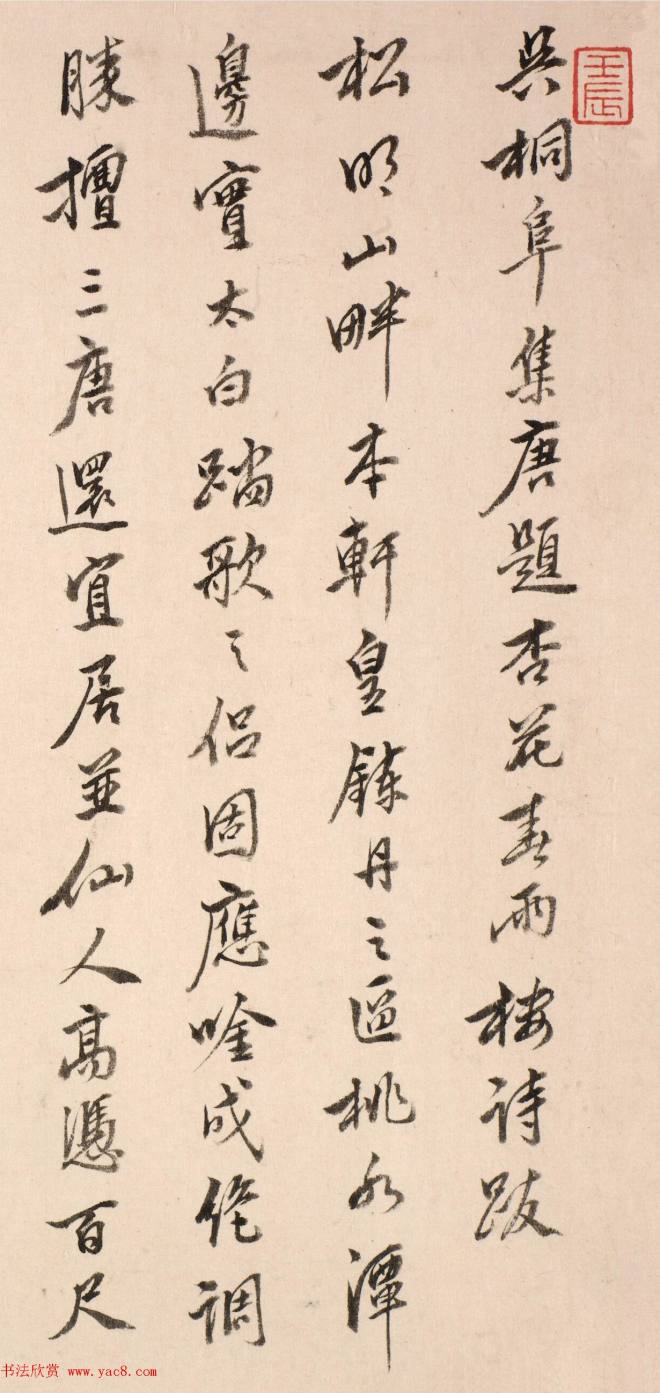 吴桐阜集唐題杏花春雨樓詩跋
松明山畔本軒皇錬丹之區桃水潭
邊實太白踏歌之侣固應唫成絶調
勝擅三唐還宜居並仙人高憑百尺
壬辰
书法欣赏 www.yac8.com